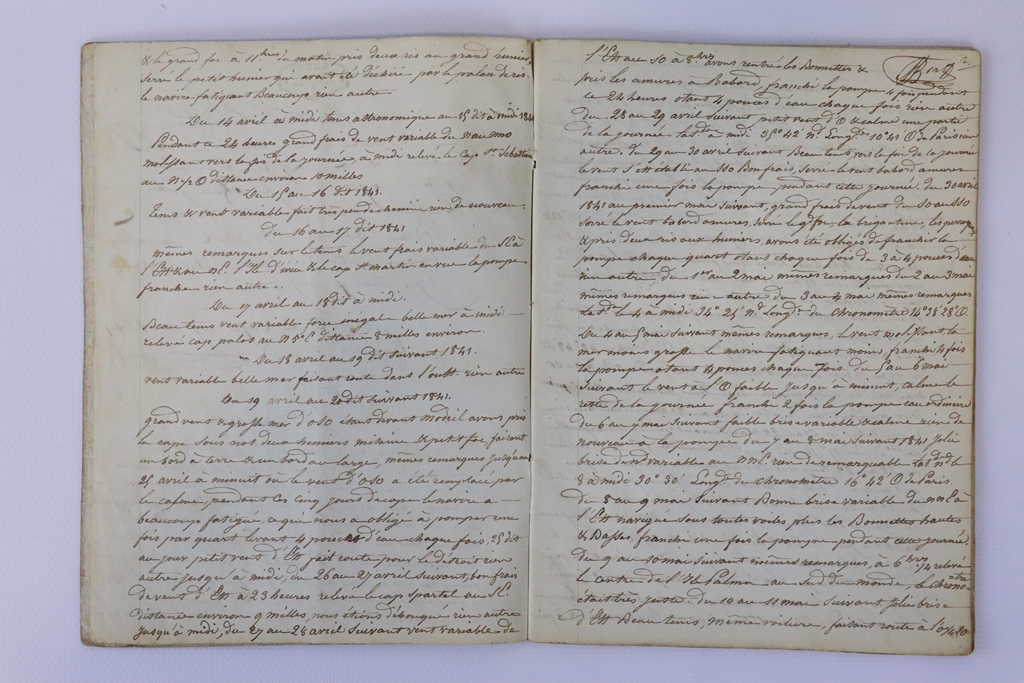 & le grand foc à 11 hres du matin pris deux ris au grand hunier,
serré le petit hunier qui avait été déchiré par le palan de ris.
le navire fatiguant Beaucoup rien autre
Du 14 avril à midi tems astronomique au 15 dit à midi 1841
Pendant ce 24 heures grand frais de vent variable du N au NNO
molissant vers la fin de la journée, à midi relevé le Cap St Sebastien
au N ½ O distance environ 10 milles
Du 15 au 16 dit 1841.
tems & vent variable fait très peu de chemin rien de nouveau.
Du 16 au 17 dit 1841
mêmes remarques sur le tems le vent frais variable du SE à
l'Est & au NE. l'Ile d'ivice & le cap St martin en vue la pompe
franche rien autre.
Du 17 avril au 18 dit à midi.
Beau tems vent variable force inégal belle mer à midi
relevé cap palos au N 5° E distance 8 milles environ.
Du 18 avril au 19 dit suivant 1841.
vent variable belle mer faisant route dans l'ouest rien autre
Du 19 avril au 20 dit suivant 1841.
grand vent & grosse mer d'OSO étant devant Motril avons pris
la cape sous nos deux huniers misaine & petit foc, faisant
un bord à terre & un bord au large, mêmes remarques jusqu'au
25 avril à minuit où le vent d'OSO a été remplacé par
le calme, pendant ces cinq jours de cape le navire a
beaucoup fatigué, ce qui nous a obligé à pomper une
fois par quart levant 4 pouces d'eau chaque fois. 25 dit
au jour petit vent d'Est fait route pour le détroit rien
autre jusqu'à midi, du 26 au 27 avril suivant, bon frais
de vent d'Est à 23 heures relevé le cap spartel au SE
distance environ 9 milles, nous étions débouqué rien autre
jusqu'à midi, du 27 au 28 avril suivant vent variable de
l'Est au SO à 8 hres avons rentré les Bonnettes &
pris les amures à Babord, franchi la pompe 4 fois pendant
ce 24 heures otant 4 pouces d'eau chaque fois rien autre
du 28 au 29 avril suivant petit vent d'O & calme une partie
de la journée latde à midi 35° 42' Nd Longde 10° 41' O de Paris rien
autre. du 29 au 30 avril suivant Beau tems vers la fin de la journée
le vent s'est établi au SSO Bon frais, serré le vent babord amures
franchi une fois la pompe pendant cette journée. du 30 avril
1841 au premier mai suivant, grand frais de vent du SO au SSO
serré le vent babord amures, serré le gd foc, la brigantine,
& pris deux ris aux huniers, avons été obligés de franchir la
pompe chaque quart otant chaque fois de 3 à 4 pouces d'eau
rien autre, du 1er au 2 mai mêmes remarques du 2 au 3 mai
mêmes remarques rien autre du 3 au 4 mai mêmes remarques
latde le 4 à midi 34° 25' Nd Longde du chronomètre 14° 38' 28" O.
Du 4 au 5 mai suivant mêmes remarques, le vent molissant la
mer moins grosse le navire fatiguant moins franchi 4 fois
la pompe otant 4 pouces chaque fois. du 5 au 6 mai
suivant le vent à l'O faible jusqu'à minuit, calme le
reste de la journée franchi 2 fois la pompe eau ordinaire
du 6 au 7 mai suivant faible brise variable & calme rien de
nouveau à la pompe. du 7 au 8 mai suivant 1841 jolie
brise de Nd variable au NNE rien de remarquable latde Nd le
8 à midi 30° 30' Longde du chronomètre 16° 42' O de Paris.
du 8 au 9 mai suivant Bonne brise variable du NNE à
l'Est navigué sous toutes voiles plus les Bonnettes hautes
& Basses, franchi une fois la pompe pendant cette journée.
du 9 au 10 mai suivant mêmes remarques, à 6 hres ¼ relevé
le centre de l'Ile Palma au Sud du monde, le chronomètre
était très juste. du 10 au 11 mai suivant Jolie brise
d'Est Beau tems, même voilure, faisant route à l'O ¼ SO